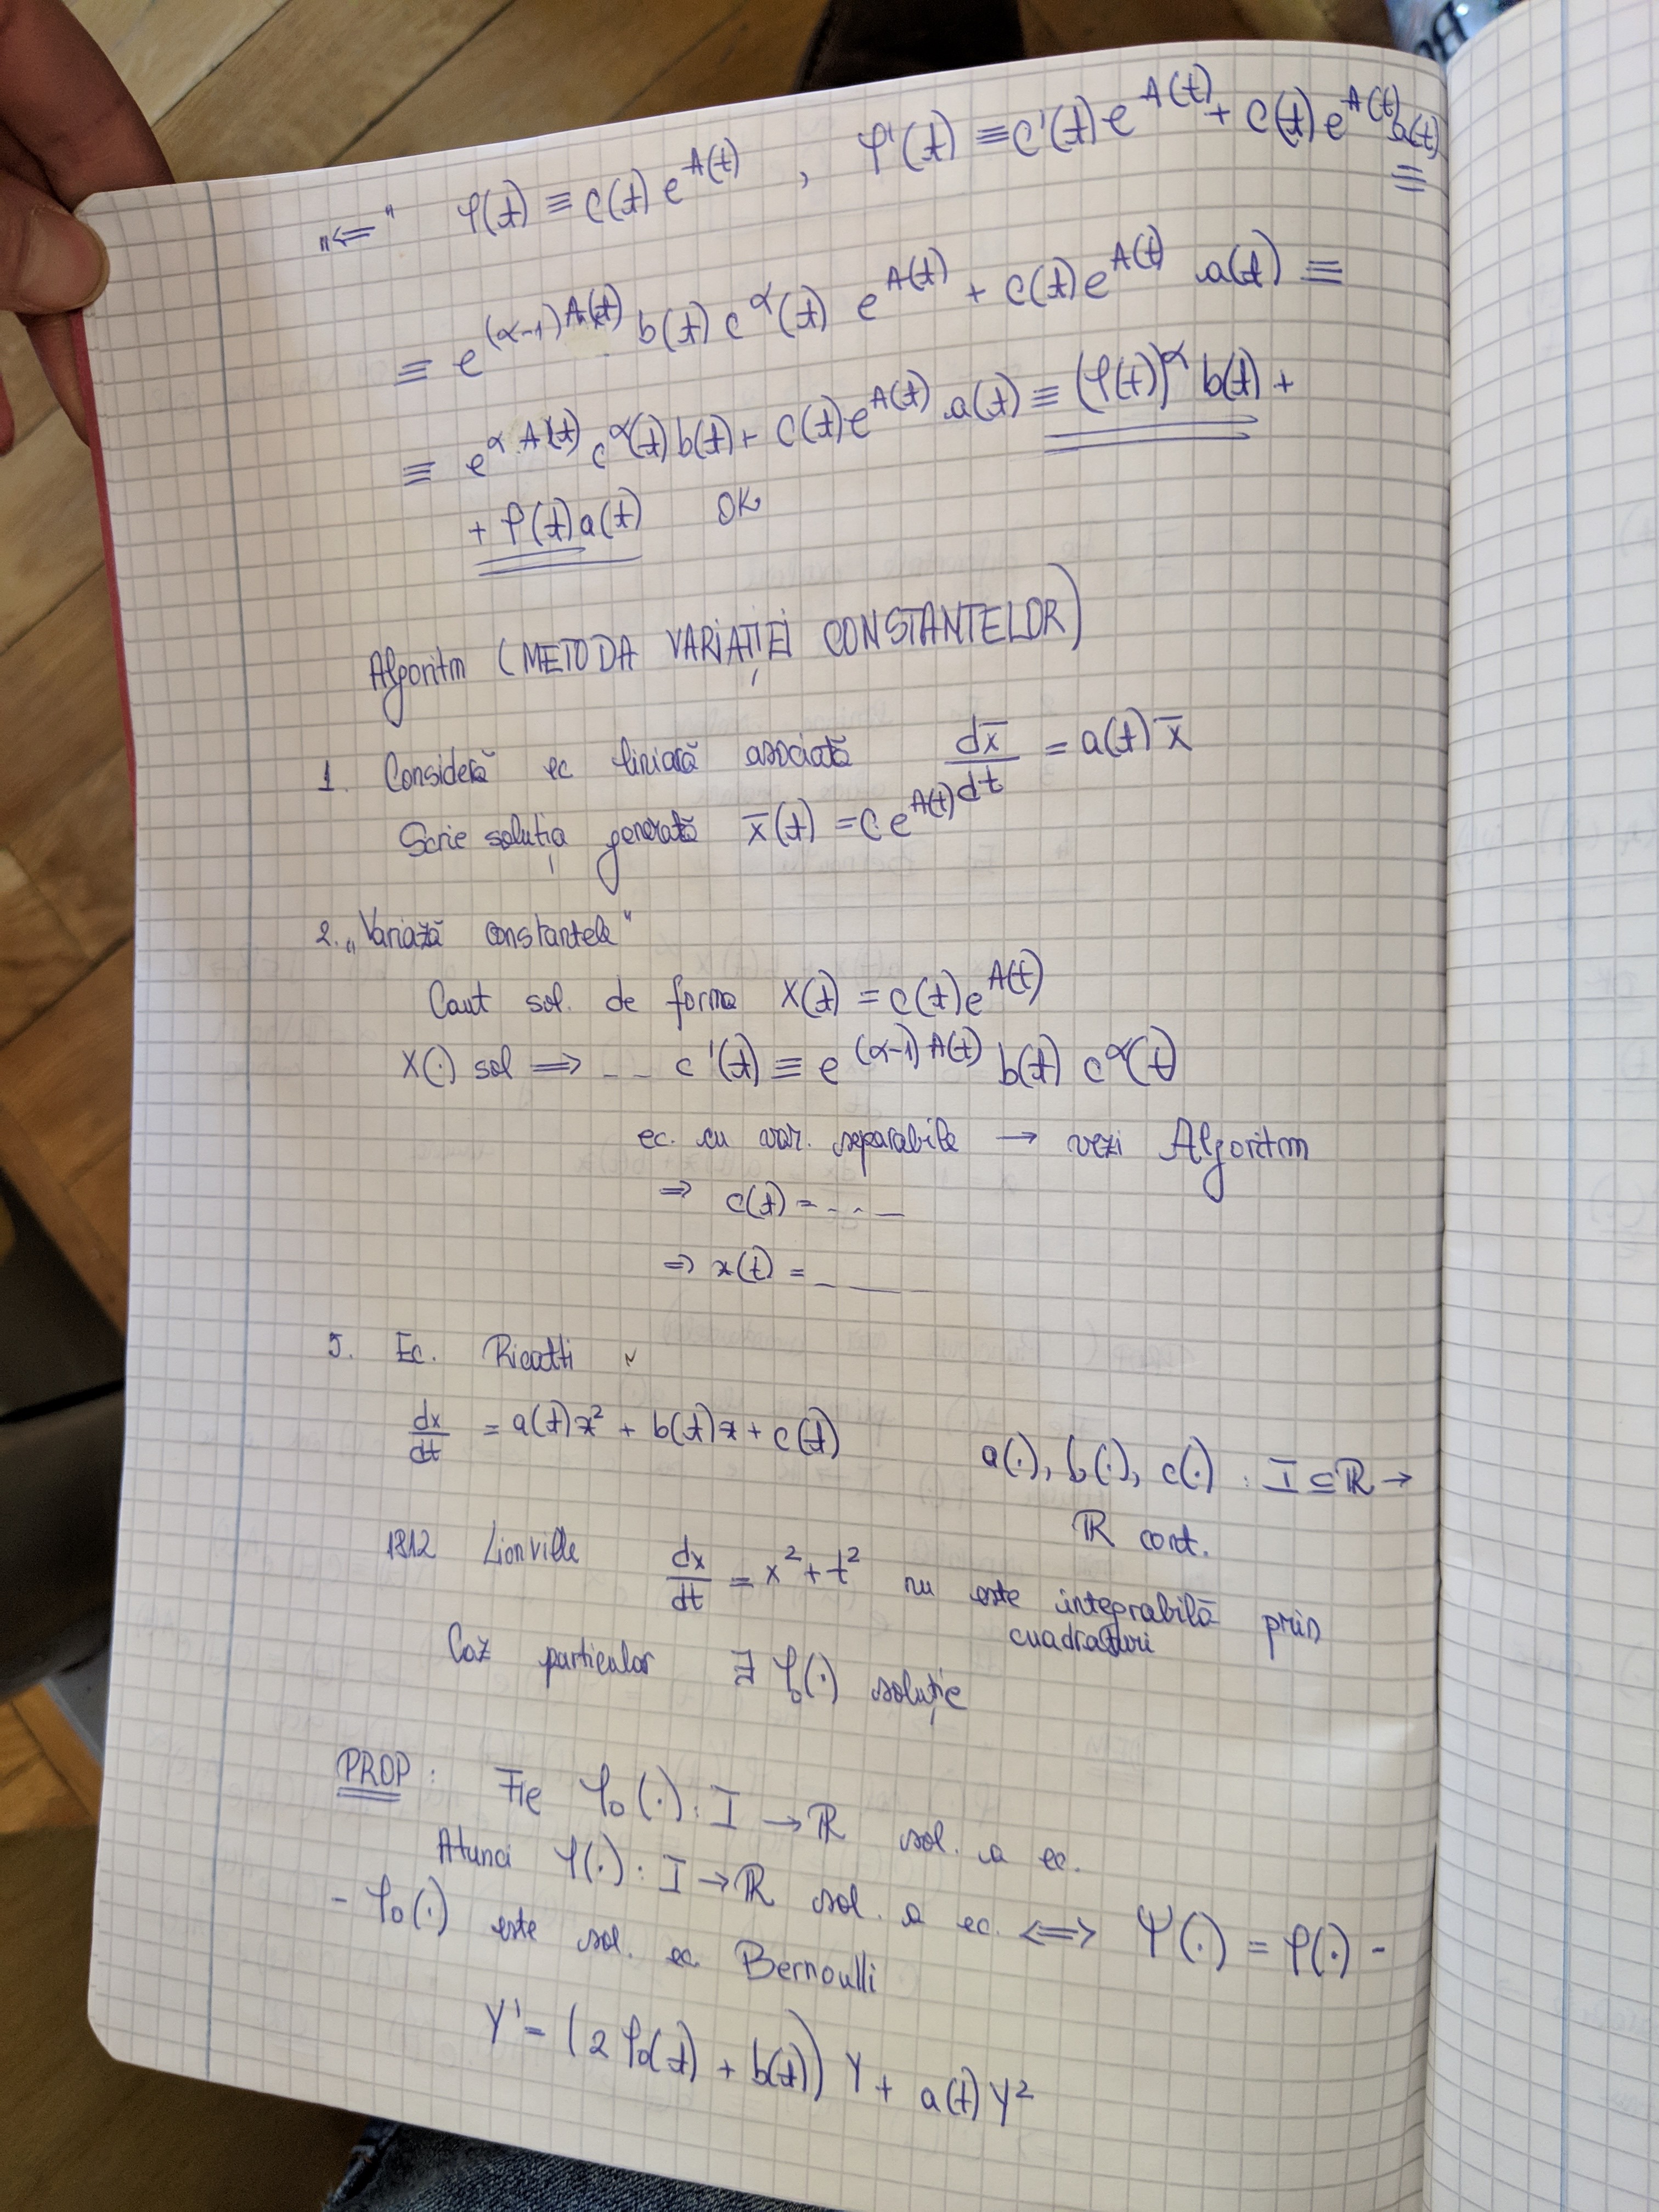 "⇐" φ(t) ≡ c(t) e^{A(t)} , φ'(t) ≡ c'(t) e^{A(t)} + c(t) e^{A(t)} a(t) ≡
≡ e^{(α-1)A(t)} b(t) c^α(t) e^{A(t)} + c(t) e^{A(t)} a(t) ≡
≡ e^{α A(t)} c^α(t) b(t) + c(t) e^{A(t)} a(t) ≡ (φ(t))^α b(t) +
+ φ(t) a(t) OK
Algoritm (METODA VARIAȚIEI CONSTANTELOR)
1. Consideră ec liniară asociată dx̄/dt = a(t) x̄
Scrie soluția generală x̄(t) = c e^{A(t)}
2. „Variază constantele"
Caut sol. de forma x(t) = c(t) e^{A(t)}
x(·) sol ⟹ -- c'(t) ≡ e^{(α-1)A(t)} b(t) c^α(t)
ec. cu var. separabile → vezi Algoritm
⇒ c(t) = ----
⇒ x(t) = ----
5. Ec. Ricatti
dx/dt = a(t)x² + b(t)x + c(t)
a(·), b(·), c(·) : I ⊆ ℝ →
ℝ cont.
1812 Lionville dx/dt = x² + t² nu este integrabilă prin
cuadraturi
Caz particular ∃ φ₀(·) soluție
PROP : Fie φ₀(·) : I → ℝ sol. a ec.
Atunci φ(·) : I → ℝ sol. a ec. ⟺ Ψ(·) = φ(·) -
- φ₀(·) este sol. ec Bernoulli
Y' = (2φ₀(t) + b(t)) Y + a(t) Y²